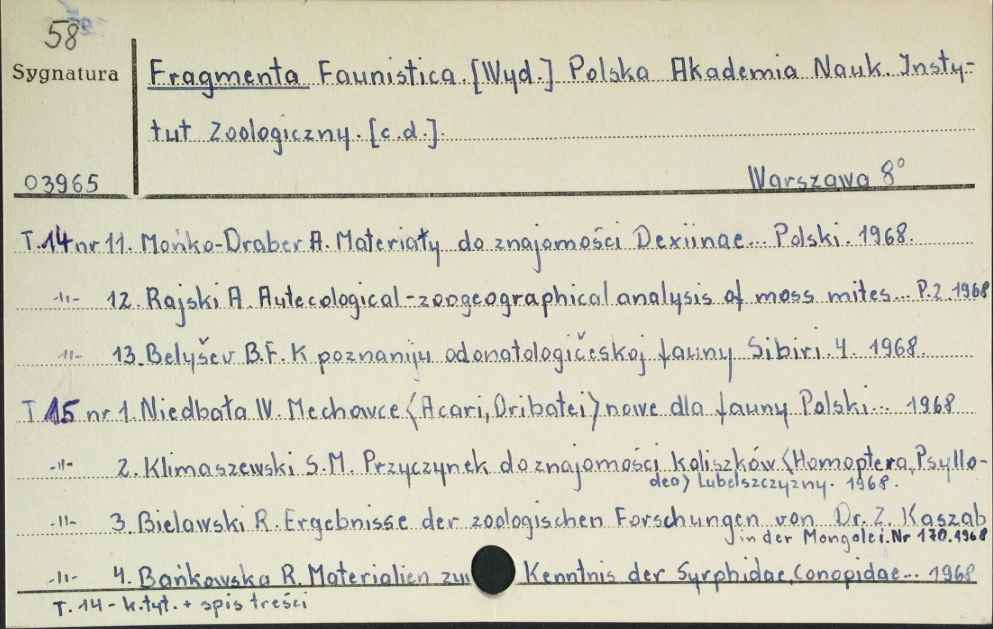 58
Sygnatura
Fragmenta Faunistica. [Wyd.] Polska Akademia Nauk. Insty-
tut Zoologiczny. [c.d.].
03965
Warszawa 8°
T. 14 nr 11. Mońko-Draber A. Materiały do znajomości Dexiinae... Polski. 1968.
-11- 12. Rajski A. Autecological-zoogeographical analysis of moss mites... P.2. 1968
-11- 13. Belyšev B.F. K poznaniju odonatologičeskoj fauny Sibiri. 4. 1968.
T. 15 nr 1. Niedbała W. Mechowce <Acari, Oribatei> nowe dla fauny Polski... 1968
-11- 2. Klimaszewski S.M. Przyczynek do znajomości koliszków <Homoptera, Psyllo-
dea> Lubelszczyzny. 1968.
-11- 3. Bielawski R. Ergebnisse der zoologischen Forschungen von Dr. Z. Kaszab
in der Mongolei. Nr 170. 1968
-11- 4. Bańkowska R. Materialien zur Kenntnis der Syrphidae, Conopidae... 1968
T. 14 - k. tyt. + spis treści